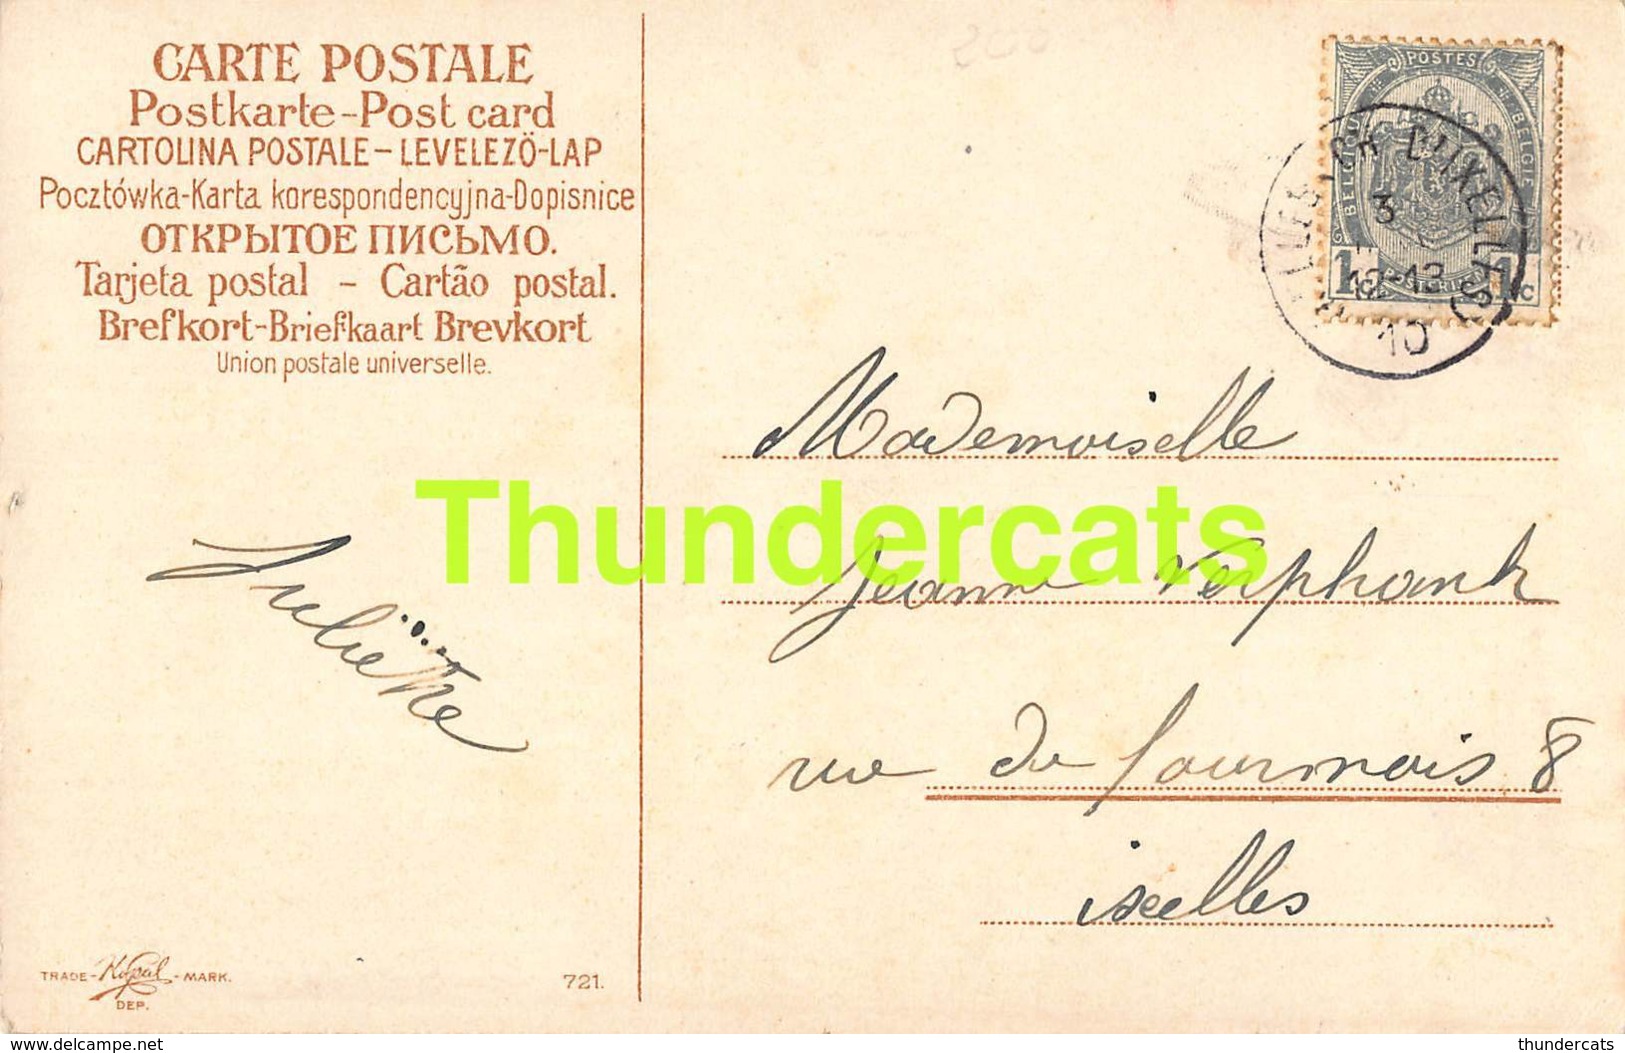 CARTE POSTALE
Postkarte-Post card
CARTOLINA POSTALE-LEVELEZÖ-LAP
Pocztówka-Karta korespondencyjna-Dopisnice
ОТКРЫТОЕ ПИСЬМО.
Tarjeta postal - Cartão postal.
Brefkort-Briefkaart Brevkort
Union postale universelle.
POSTES
BELGIQUE
BELGIE
1c
1c
D'IXELLES
3
12-13
10
Mademoiselle
Thundercats
Jeanne
Juliëtte
rue du fournois 8
ixelles
TRADE-Kopal-MARK.
DEP.
721.
https://www.delcampe.net
thundercats